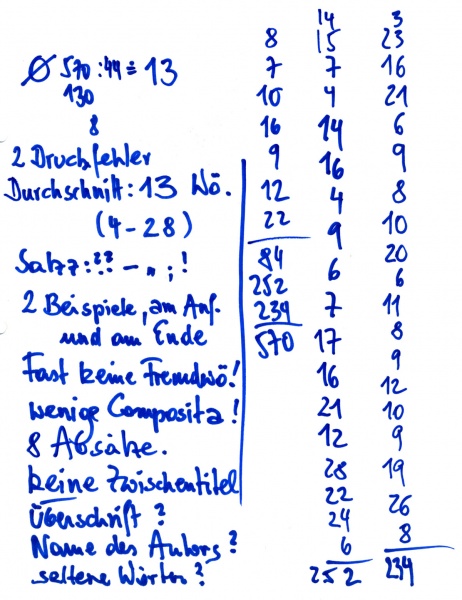 Ø 570 : 44 = 13
130
8
2 Druckfehler
Durchschnitt: 13 Wö.
(4-28)
Satzz: ?? - „ ; !
2 Beispiele, am Anf.
und am Ende
Fast keine Fremdwö!
wenige Composita!
8 Absätze.
keine Zwischentitel
Überschrift?
Name des Autors?
seltene Wörter?
8
7
10
16
9
12
22
84
252
234
570
14
15
7
4
14
16
4
9
6
7
17
16
21
12
28
22
24
6
252
3
23
16
21
6
9
8
10
20
6
11
8
9
12
10
9
19
26
8
234